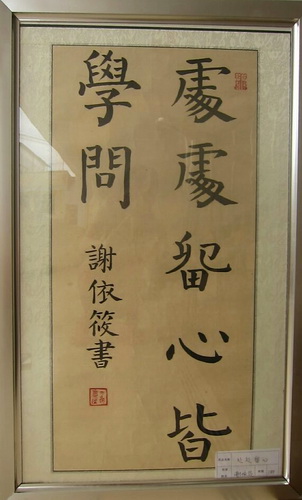 處處留心皆
學問
謝依筱書